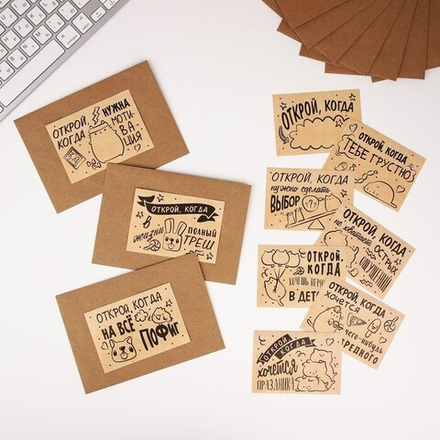 ОТКРОЙ,
КОГДА
НУЖНА
МОТИ-
ВА-
ЦИЯ
ОТКРОЙ, КОГДА
В
жизни
ПОЛНЫЙ
ТРЕШ
ОТКРОЙ, КОГДА
НА ВСЁ
ПОФИГ
ОТКРОЙ, КОГДА
ОТКРОЙ, КОГДА
ТЕБЕ ГРУСТНО
ОТКРОЙ, КОГДА
нужно сделать
ВЫБОР
ОТКРОЙ, КОГДА
не хватает ОСТРЫХ
ОТКРОЙ,
КОГДА
ХОЧЕШЬ
В ДЕТ
ОТКРОЙ, КОГДА
ХОЧЕТСЯ
ОТКРОЙ
КОГДА
хочется
ПРАЗДНИКА